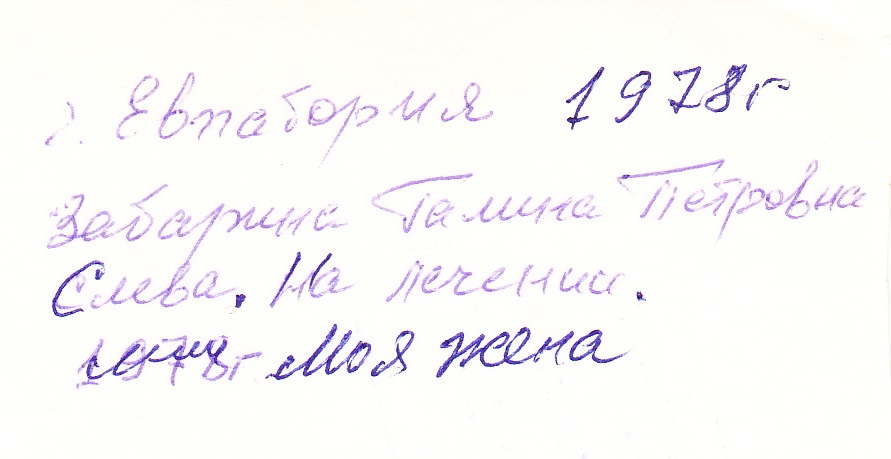 г. Евпатория 1978г
Забарина Галина Петровна
Слева. На лечении.
1978г Моя жена